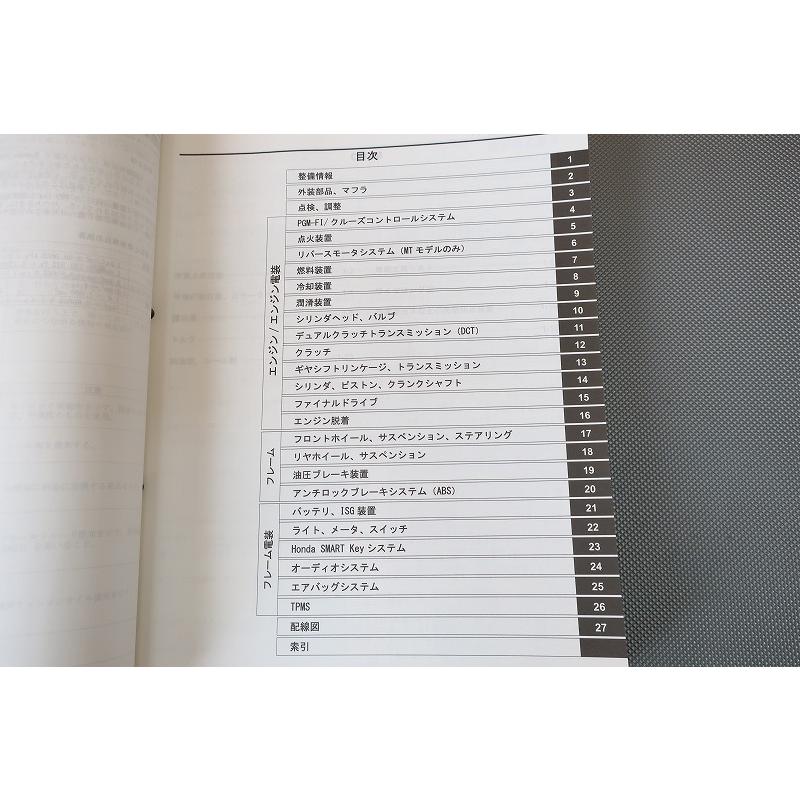 目次
整備情報 1
外装部品、マフラ 2
点検、調整 3
エンジン/エンジン電装
PGM-FI/クルーズコントロールシステム 4
点火装置 5
リバースモータシステム (MTモデルのみ) 6
燃料装置 7
冷却装置 8
潤滑装置 9
シリンダヘッド、バルブ 10
デュアルクラッチトランスミッション (DCT) 11
クラッチ 12
ギヤシフトリンケージ、トランスミッション 13
シリンダ、ピストン、クランクシャフト 14
ファイナルドライブ 15
エンジン脱着 16
フレーム
フロントホイール、サスペンション、ステアリング 17
リヤホイール、サスペンション 18
油圧ブレーキ装置 19
アンチロックブレーキシステム (ABS) 20
フレーム電装
バッテリ、ISG装置 21
ライト、メータ、スイッチ 22
Honda SMART Keyシステム 23
オーディオシステム 24
エアバッグシステム 25
TPMS 26
配線図 27
索引